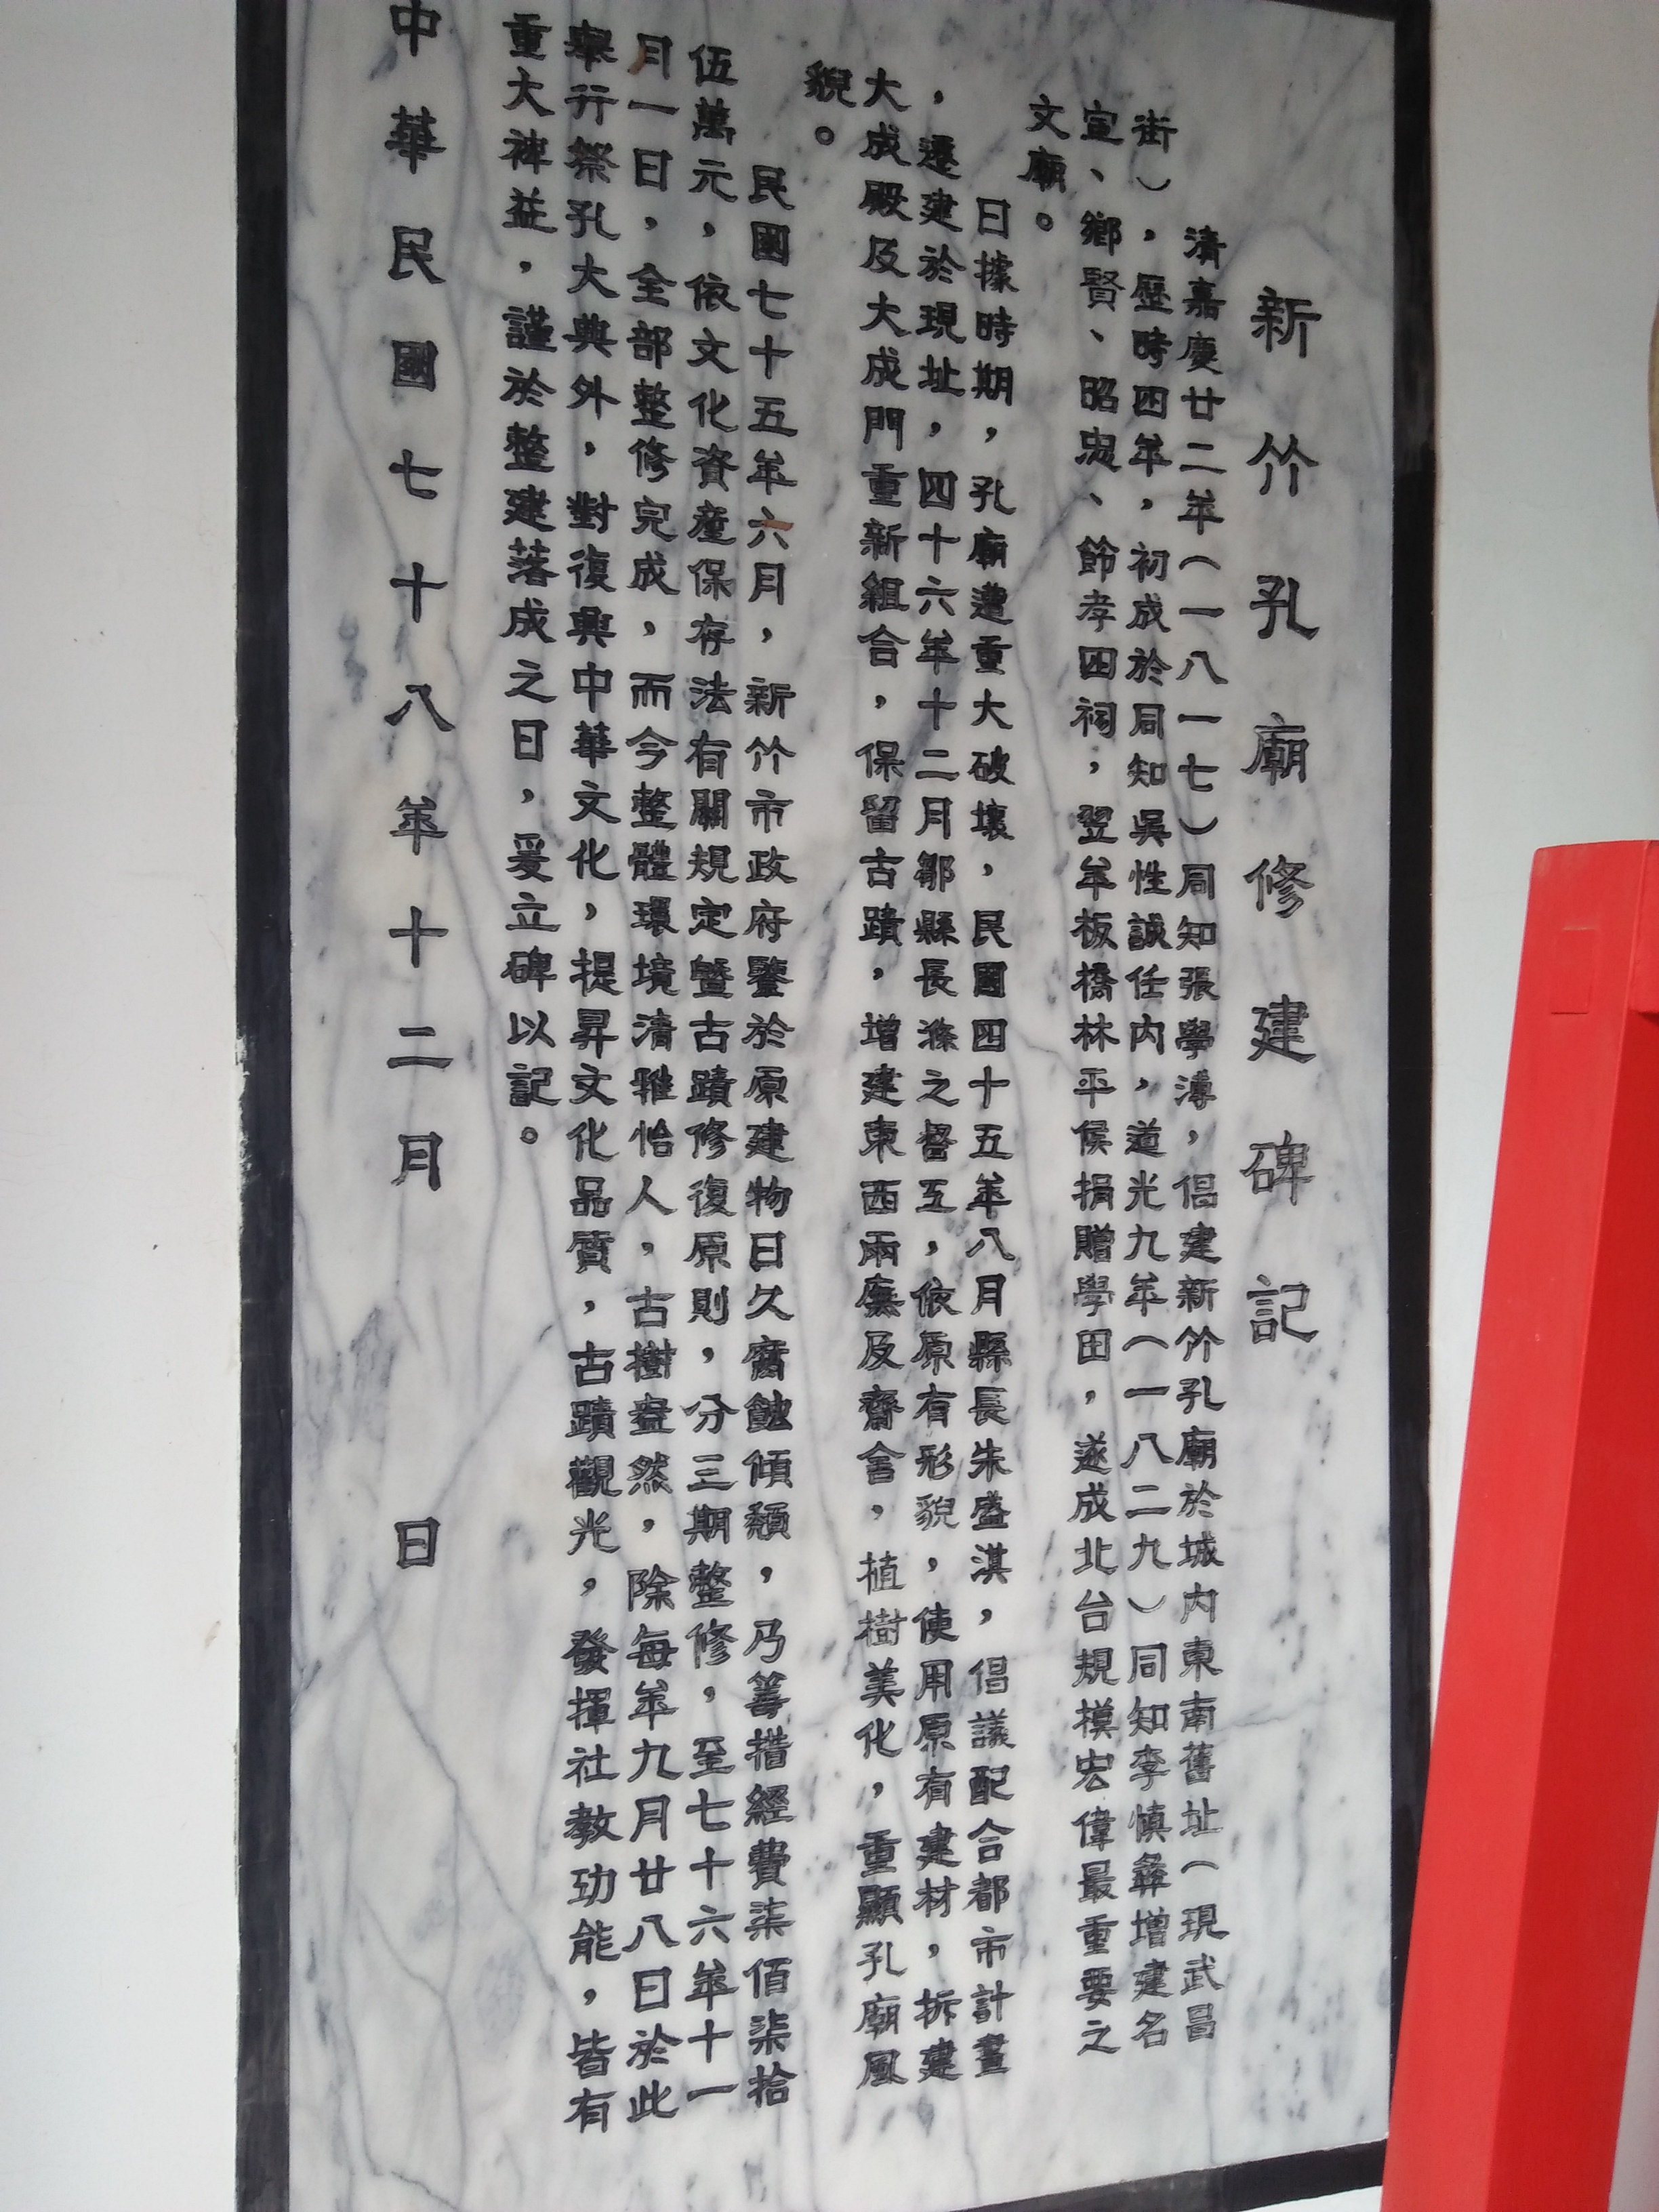 新竹孔廟修建碑記
清嘉慶廿二年（一八一七）同知張學溥，倡建新竹孔廟於城內東南舊址（現武昌
街），歷時四年，初成於同知吳性誠任內，道光九年（一八二九）同知李慎彝增建名
宦、鄉賢、昭忠、節孝四祠，翌年板橋林平侯捐贈學田，遂成北台規模宏偉最重要之
文廟。
日據時期，孔廟遭重大破壞，民國四十五年八月縣長朱盛淇，倡議配合都市計畫
，遷建於現址，四十六年十二月鄒縣長滌之督工，依原有形貌，使用原有建材，拆建
大成殿及大成門重新組合，保留古蹟，增建東西兩廡及齋舍，植樹美化，重顯孔廟風
貌。
民國七十五年六月，新竹市政府鑒於原建物日久腐蝕傾頹，乃籌措經費柒佰柒拾
伍萬元，依文化資產保存法有關規定暨古蹟修復原則，分三期整修，至七十六年十一
月一日，全部整修完成，而今整體環境清雅怡人，古樹盎然，除每年九月廿八日於此
舉行祭孔大典外，對復興中華文化，提昇文化品質，古蹟觀光，發揮社教功能，皆有
重大裨益，謹於整建落成之日，爰立碑以記。
中華民國七十八年十二月　　日